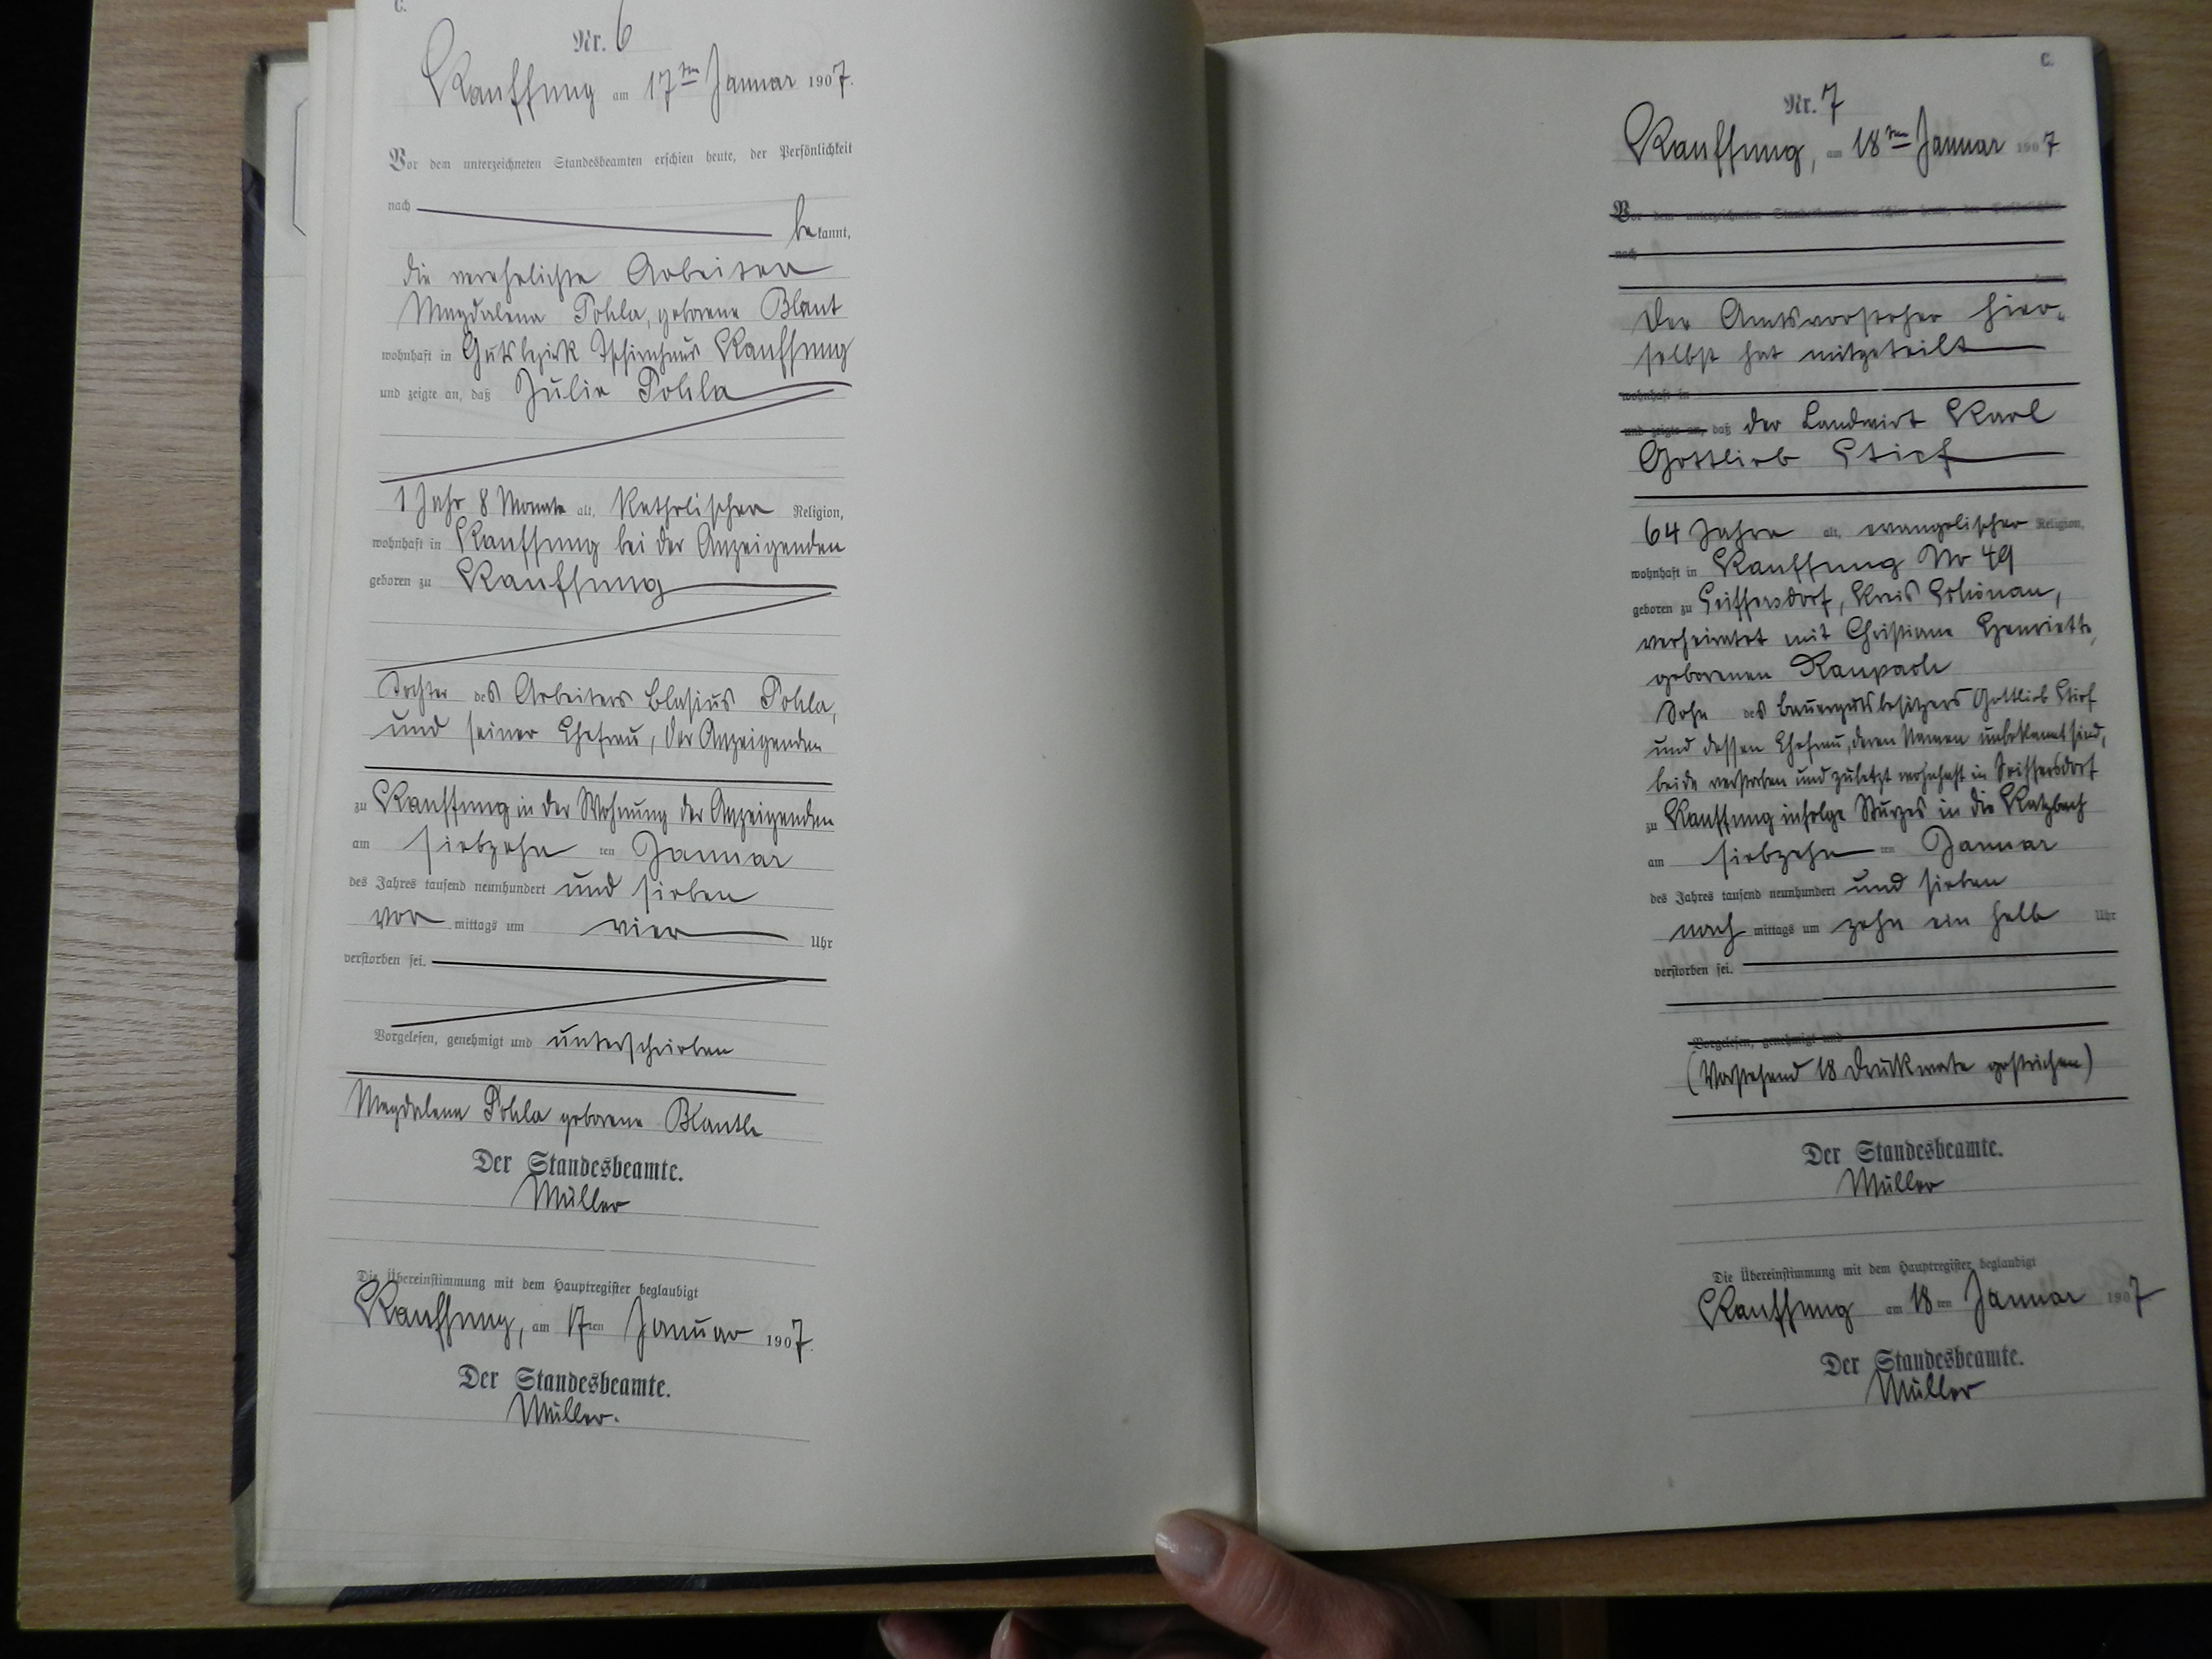 C.
Nr. 6
Kauffung am 17ten Januar 1907.
Vor dem unterzeichneten Standesbeamten erschien heute, der Persönlichkeit
nach
bekannt,
die verehelichte Arbeiter
Magdalena Pohla, geborene Blaut
wohnhaft in Gutsbezirk Tschirnhaus Kauffung
und zeigte an, daß Julie Pohla
1 Jahr 8 Monate alt, Katholischer Religion,
wohnhaft in Kauffung bei der Anzeigenden
geboren zu Kauffung
Tochter des Arbeiters Blasius Pohla,
und seiner Ehefrau, der Anzeigenden
zu Kauffung in der Wohnung der Anzeigenden
am siebzehn ten Januar
des Jahres tausend neunhundert und sieben
vor mittags um vier Uhr
verstorben sei.
Vorgelesen, genehmigt und unterschrieben
Magdalena Pohla geborene
Der Standesbeamte.
Müller
Die Übereinstimmung mit dem Hauptregister beglaubigt
Kauffung, am 17ten Januar 1907.
Der Standesbeamte.
Müller.
C.
Nr. 7
Kauffung, am 18ten Januar 1907
Vor dem unterzeichneten Standesbeamten erschien heute, der Persönlichkeit
nach
kannt,
Der Amtsvorsteher hier-
selbst hat mitgeteilt
wohnhaft in
und zeigte an, daß der Landwirt Karl
Gottlieb Stief
64 Jahre alt, evangelischer Religion,
wohnhaft in Kauffung No 49
geboren zu Seiffersdorf, Kreis Schönau,
verheiratet mit Christiane Henriette,
geborenen Raupach
Sohn des Bauergutsbesitzers Gottlieb Stief
und dessen Ehefrau, deren Namen unbekannt sind,
beide verstorben und zuletzt wohnhaft in Seiffersdorf
zu Kauffung infolge Sturzes in die Katzbach
am siebzehn ten Januar
des Jahres tausend neunhundert und sieben
nach mittags um zehn ein halb Uhr
verstorben sei.
Vorgelesen, genehmigt und
(Vorstehend 18 Druckworte gestrichen)
Der Standesbeamte.
Müller
Die Übereinstimmung mit dem Hauptregister beglaubigt
Kauffung am 18ten Januar 1907
Der Standesbeamte.
Müller